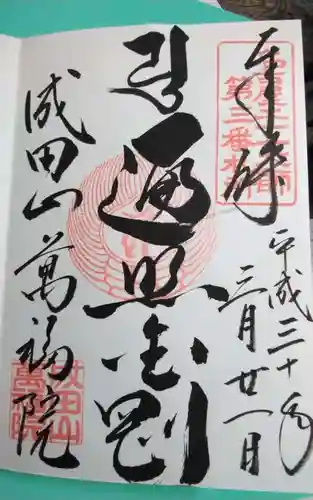 奉拝
平成三十年
三月廿一日
遍照金剛
成田山萬福院
第三番
成田山
萬福院